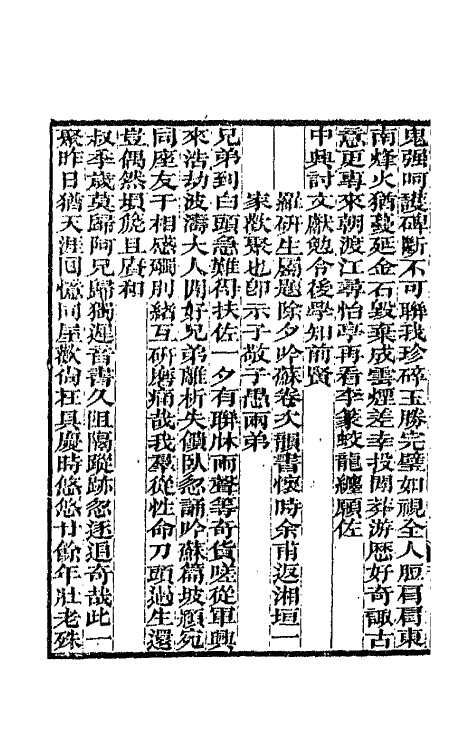 鬼強呵護碑斷不可聯我珍碎玉勝完璧如視全人脰肩肩東
南烽火猶蔓延金石毀棄成雲煙差幸投閒莽游歷好奇諏古
意更專來朝渡江尋怡亭再看李篆蛟龍纏願佐
中興討文獻勉令後學知前賢
羅研生屬題除夕吟蘇卷次韻書懷時余甫返湘垣一
家歡聚也卽示子敬子愚兩弟
兄弟到白頭急難得扶佐一夕有聯牀雨聲等奇貨嗟從軍興
來浩劫波濤大人閒好兄弟離析失饑臥忽誦吟蘇篇坡潁宛
同座友于相感礪刖緒互研磨痛哉我羣從性命刀頭過生還
豈偶然埙箎且屑和
叔季歲莫歸阿兄歸獨遲音書久阻隔蹤跡忽逐追奇哉此一
聚昨日猶天涯回憶同屋歡尙在具慶時悠悠廿餘年壯老殊